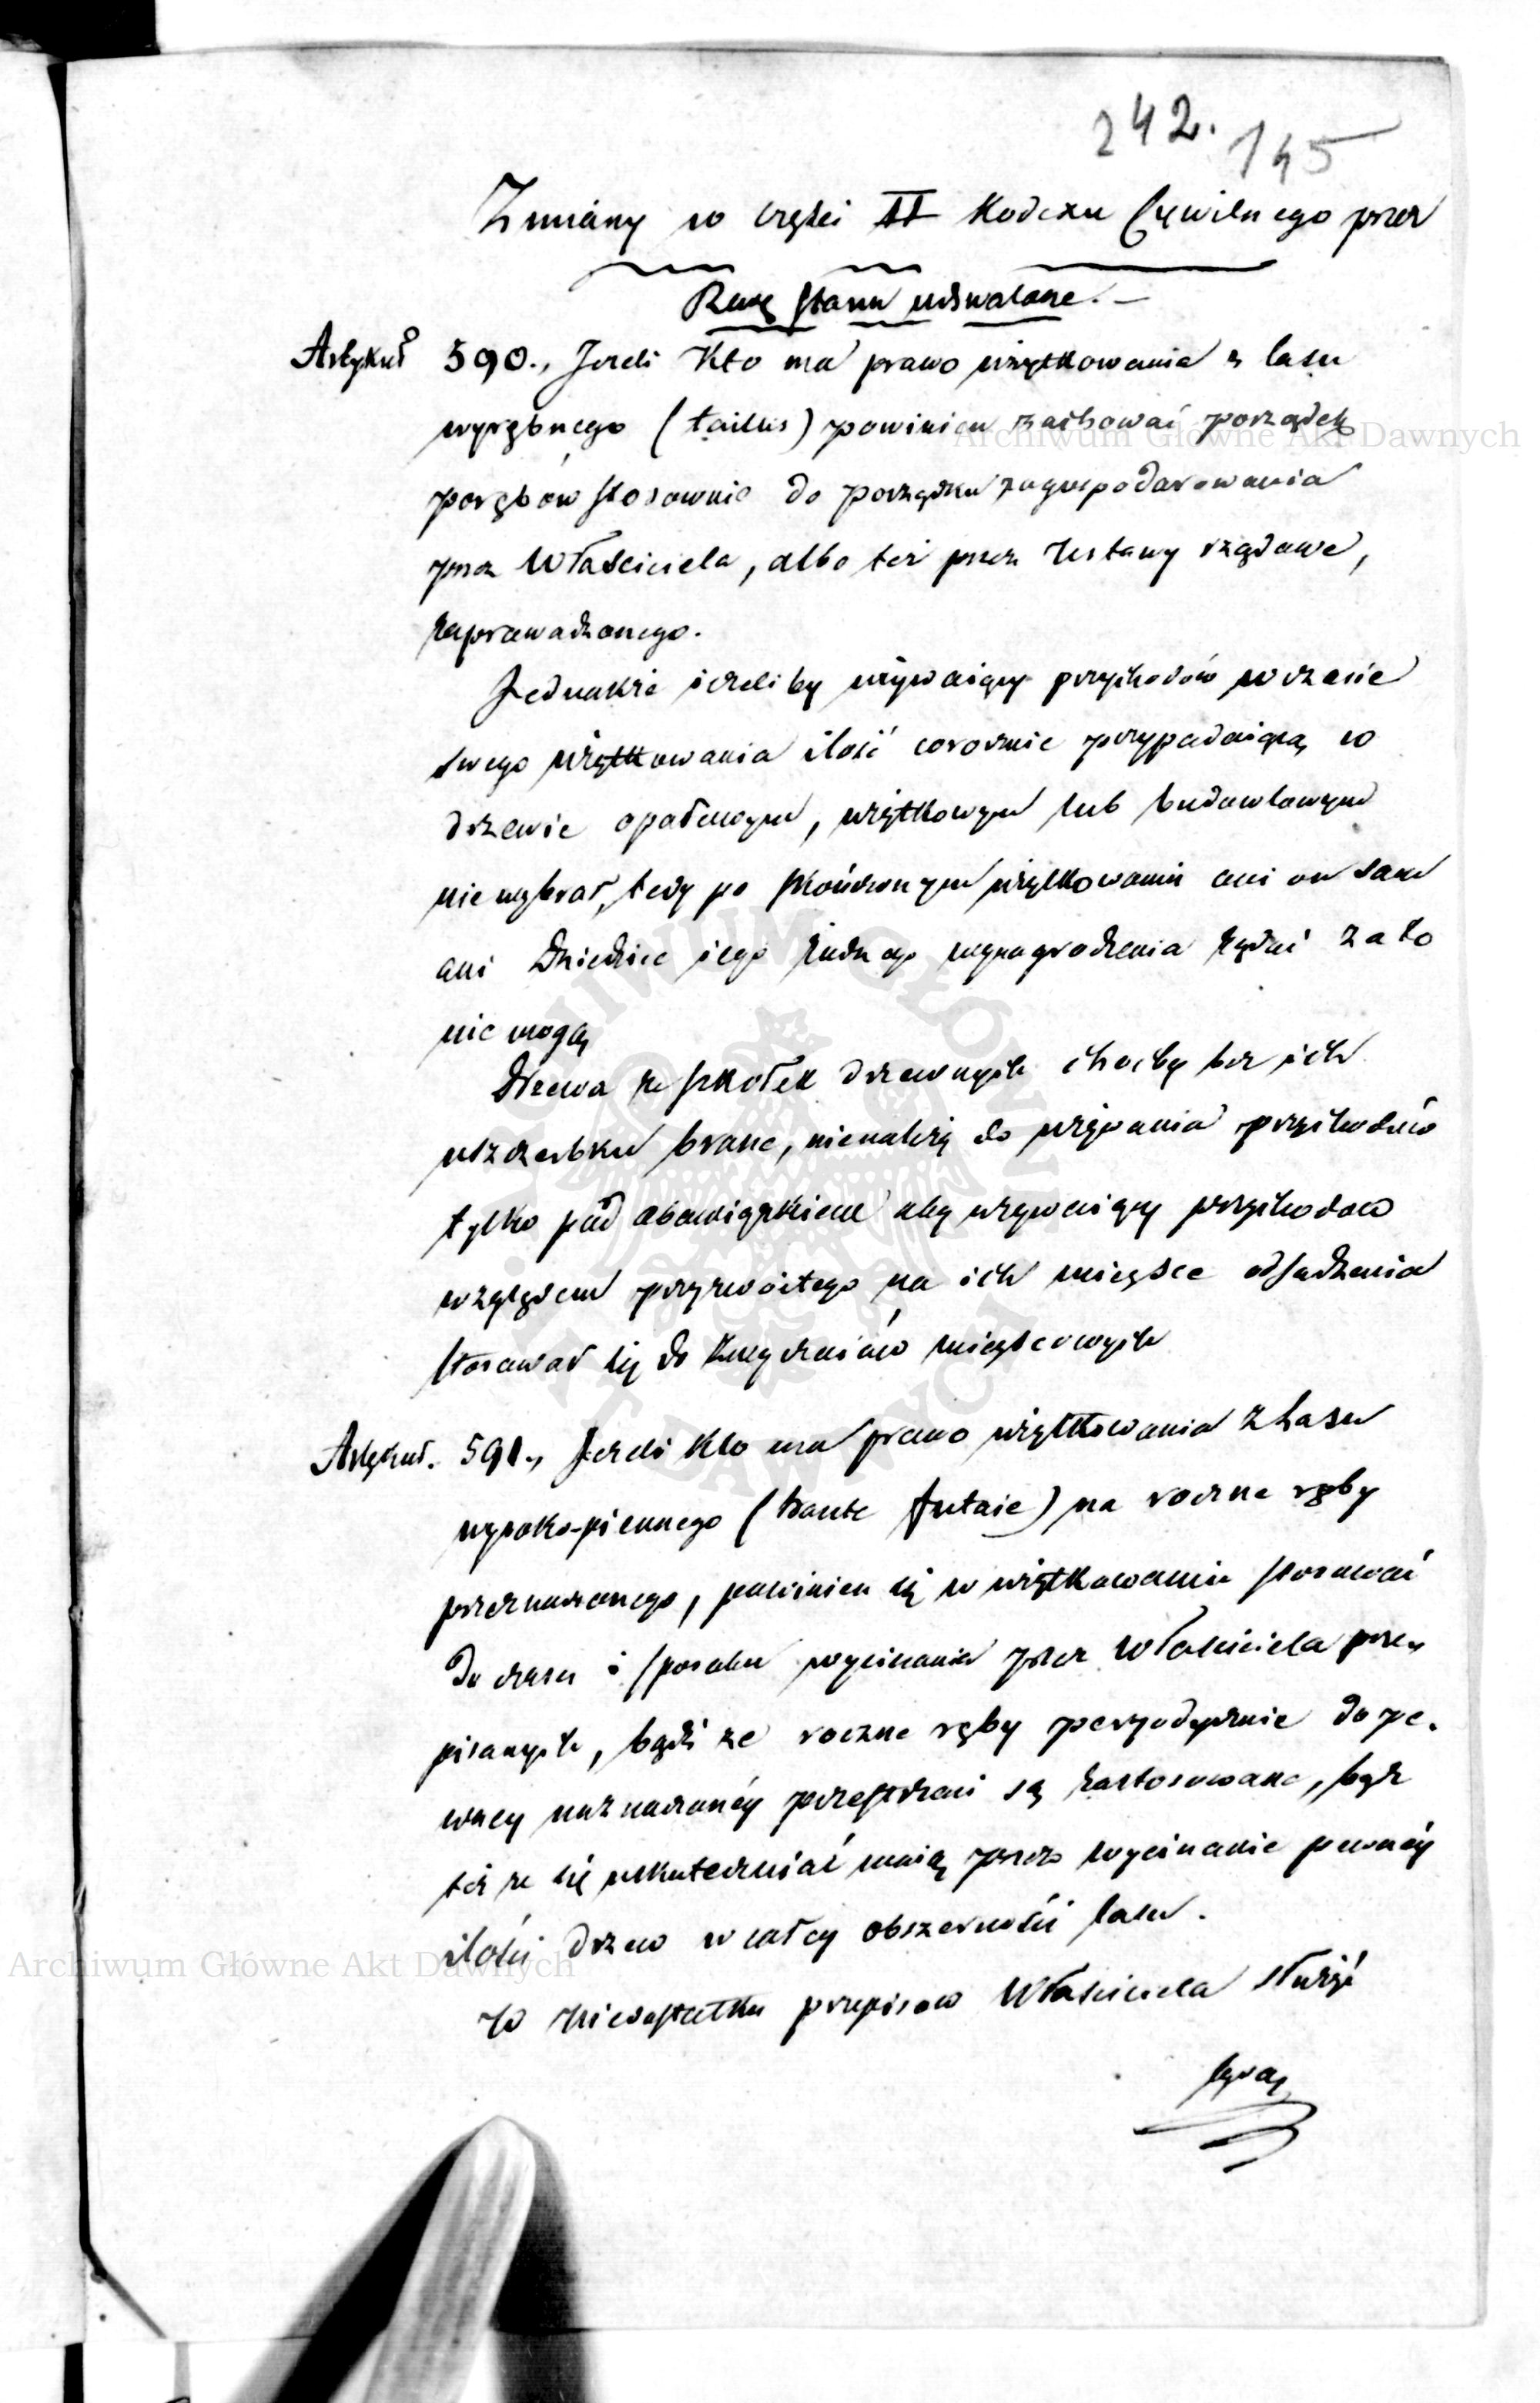 242. 145
Zmiany w części II Kodexu Cywilnego przez
Radę Stanu uchwalone. —
Artykuł 590., Jeżeli kto ma prawo użytkowania z lasu
wyrębnego (taillis) powinien zachować porządek
porębów stosownie do porządku zagospodarowania
przez Właściciela, albo też przez Ustawy rządowe,
zaprowadzonego.
Jednakże ieżeliby używaiący przychodów w czasie
swego użytkowania ilość corocznie przypadaiącą w
drzewie opałowym, użytkowym lub budowlowym
nie wybrał, tedy po skończonym użytkowaniu ani on sam
ani Dziedzice iego żadnego wynagrodzenia żądać za to
nie mogą
Drzewa ze szkółek drzewnych choćby bez ich
uszczerbku brane, nienależą do używania przychodów
tylko pod obowiązkiem aby używaiący przychodów
względem przyzwoitego na ich mieysce odsadzenia
stosował się do zwyczaiów mieyscowych
Artykuł. 591., Jeżeli kto ma prawo użytkowania z Lasu
wysoko-piennego (haute futaie) na roczne ręby
przeznaczonego, powinien się w użytkowaniu stosować
do czasu i sposobu wycinania przez Właściciela prze-
pisanych, bądź że roczne ręby peryodycznie do pe-
wney naznaczonéy przestrzeni są zastosowane, bądź
też że się uskuteczniać maią przez wycinanie pewnéy
ilości drzew w całey obszerności lasu.
W niedostatku przepisów Właściciela służyć
będą
Archiwum Główne Akt Dawnych
Archiwum Główne Akt Dawnych
ARCHIWUM GŁÓWNE AKT DAWNYCH